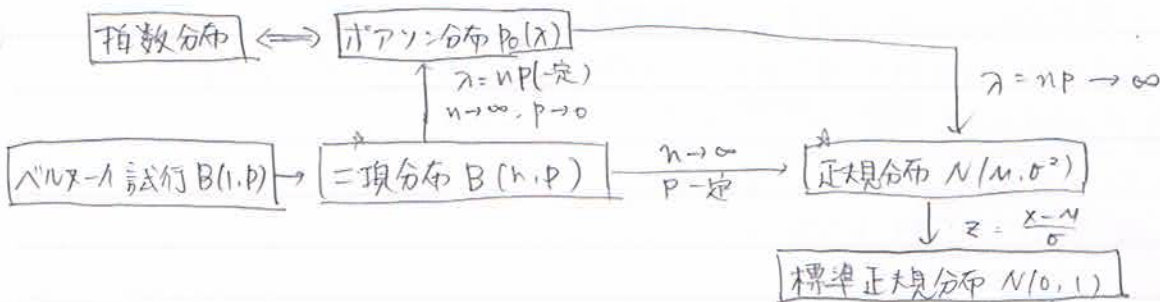 指数分布 ⇔ ポアソン分布 Po(λ)
λ = np(一定)
n→∞, p→0
λ = np → ∞
ベルヌーイ試行 B(1,p) → ☆二項分布 B(n,p)
n→∞
p 一定
☆正規分布 N(μ,σ²)
↓ z = x-μ/σ
標準正規分布 N(0,1)